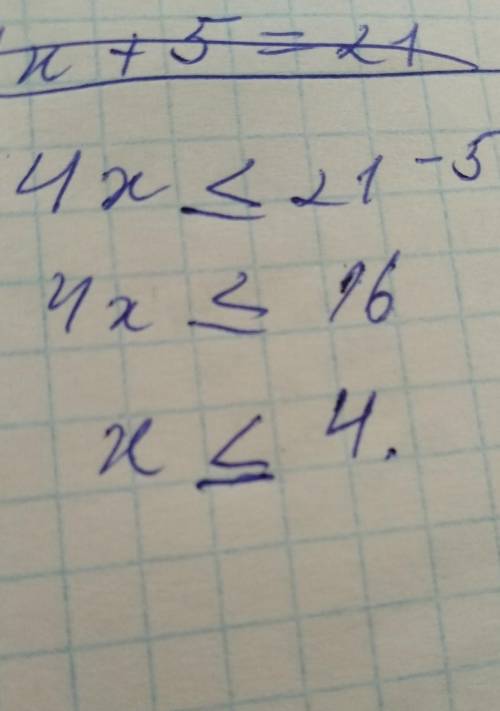 x + 5 = 21
4x ≤ 21 - 5
4x ≤ 16
x ≤ 4.